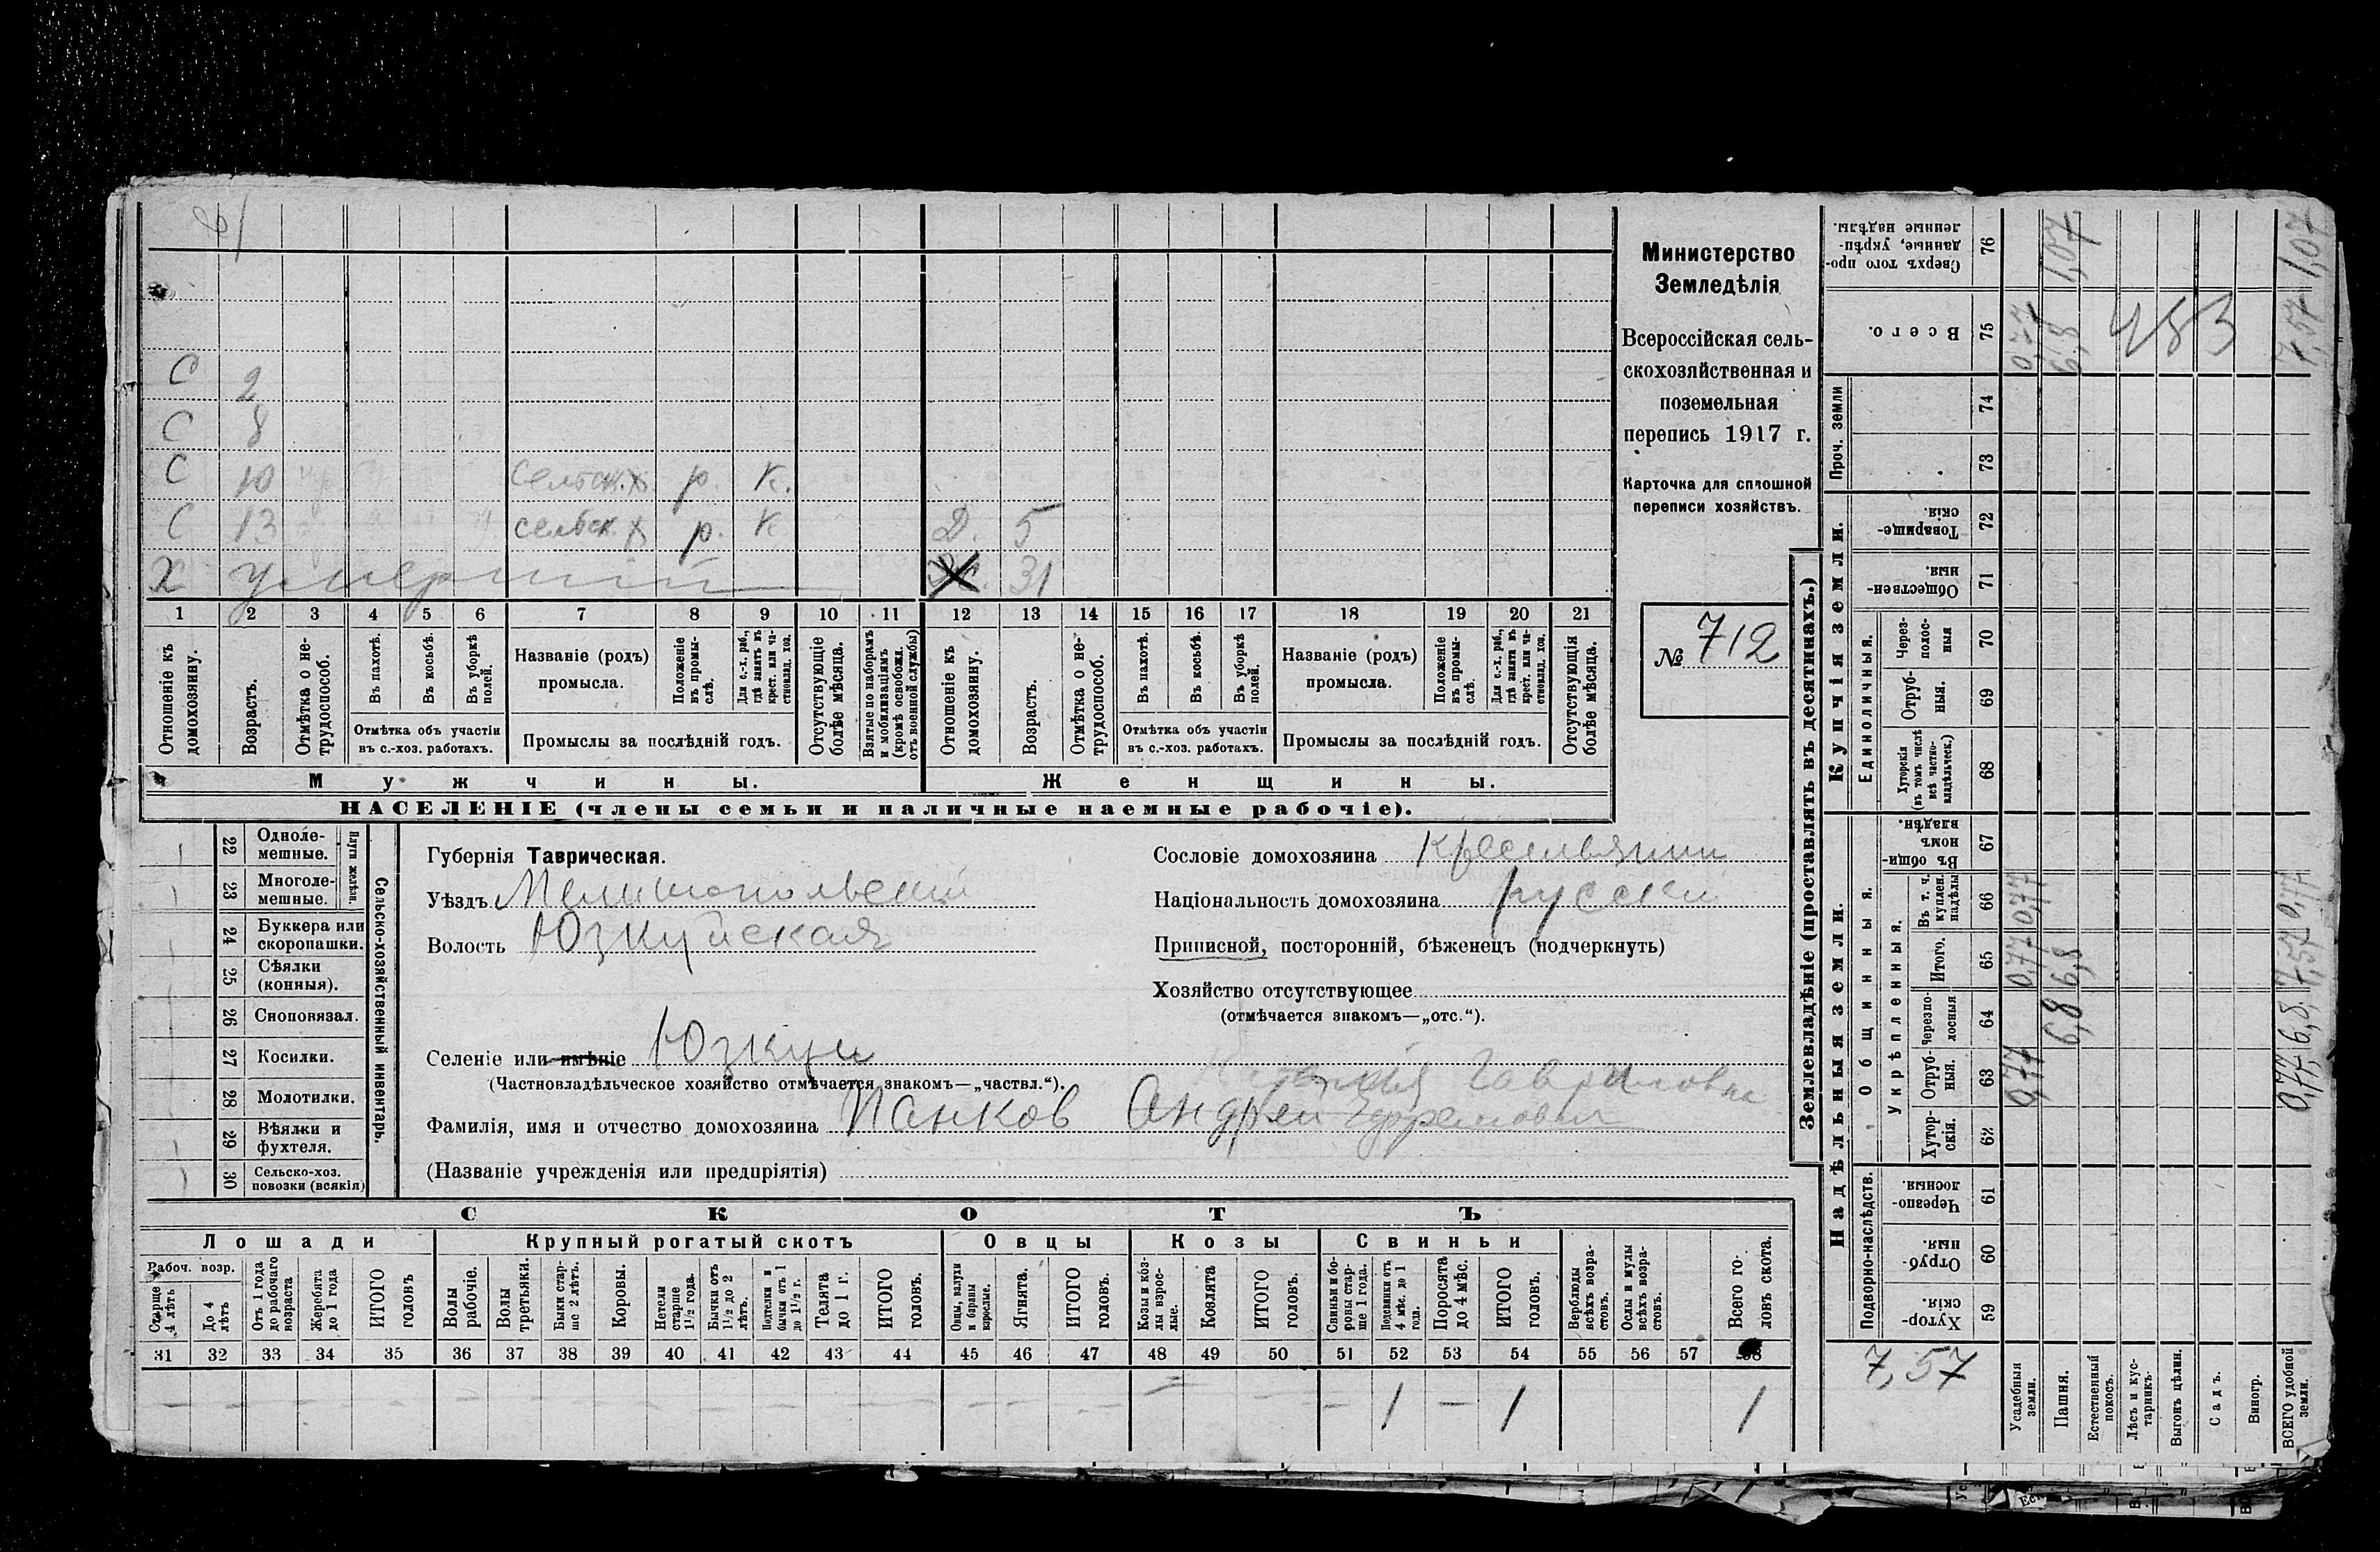 С
2
С 8
С 10 сельск.х. р. к.
С 13 сельск х р. к Д. 5
Х умерший 31
1 2 3 4 5 6 7 8 9 10 11 12 13 14 15 16 17 18 19 20 21
Отношеніе къ домохозяину.
Возрастъ.
Отмѣтка о не-
трудоспособ.
Въ пахотѣ.
Въ косьбѣ.
Въ уборкѣ полей.
Отмѣтка объ участіи
въ с.-хоз. работахъ.
Названіе (родъ)
промысла.
Положеніе
въ промы-
слѣ.
Для с.-х. раб.,
гдѣ занятъ въ
крест. или ча-
стновлад. хоз.
Промыслы за послѣдній годъ.
Отсутствующіе
болѣе мѣсяца.
Взятые по наборамъ
и мобилизаціямъ
(кромѣ освобожд.
отъ военной службы)
Отношеніе къ
домохозяину.
Возрастъ.
Отмѣтка о не-
трудоспособ.
Въ пахотѣ.
Въ косьбѣ.
Въ уборкѣ
полей.
Отмѣтка объ участіи
въ с.-хоз. работахъ.
Названіе (родъ)
промысла.
Положеніе
въ промы-
слѣ.
Для с.-х. раб.,
гдѣ занята въ
крест. или ча-
стновлад. хоз.
Промыслы за послѣдній годъ.
Отсутствующія
болѣе мѣсяца.
Мужчины.
Женщины.
НАСЕЛЕНІЕ (члены семьи и наличные наемные рабочіе).
Министерство
Земледѣлія
Всероссійская сель-
скохозяйственная и
поземельная
перепись 1917 г.
Карточка для сплошной
переписи хозяйствъ.
№ 712
22 Одноле-
мешные.
23 Многоле-
мешные.
Плуги желѣзн.
24 Буккера или
скоропашки.
25 Сѣялки
(конныя).
26 Сноповязал.
27 Косилки.
28 Молотилки.
29 Вѣялки и
фухтеля.
30 Сельско-хоз.
повозки (всякія)
Сельско-хозяйственный инвентарь.
Губернія Таврическая.
Уѣздъ Мелитопольский
Волость Юзкуйская
Селеніе или имѣніе Юзкуи
(Частновладѣльческое хозяйство отмѣчается знакомъ—„частвл.“).
Гавриловна
Фамилія, имя и отчество домохозяина Панков Андрей Ефремович
(Названіе учрежденія или предпріятія)
Сословіе домохозяина крестьянин
Національность домохозяина русски
Приписной, посторонній, бѣженецъ (подчеркнуть)
Хозяйство отсутствующее
(отмѣчается знакомъ—„отс.“).
СКОТЪ
Лошади
Крупный рогатый скотъ
Овцы
Козы
Свиньи
Рабоч. возр.
Старше
4 лѣтъ
До 4
лѣтъ
Отъ 1 года
до рабочаго
возраста
Жеребята
до 1 года
ИТОГО
головъ
Волы
рабочіе.
Волы
третьяки.
Быки стар-
ше 2 лѣтъ.
Коровы.
Нетели
старше
1½ года.
Бычки отъ
1½ до 2
лѣтъ.
Подтелки и
бычки отъ 1
до 1½ г.
Телята
до 1 г.
ИТОГО
головъ.
Овцы, валухи
и бараны
взрослые.
Ягнята.
ИТОГО
головъ.
Козы и коз-
лы взрос-
лые.
Козлята
ИТОГО
головъ.
Свиньи и бо-
ровы стар-
ше 1 года.
Подсвинки отъ
4 мѣс. до 1
года.
Поросята
до 4 мѣс.
ИТОГО
головъ.
Верблюды
всѣхъ возра-
стовъ.
Ослы и мулы
всѣхъ возра-
стовъ.
Всего го-
ловъ скота.
31 32 33 34 35 36 37 38 39 40 41 42 43 44 45 46 47 48 49 50 51 52 53 54 55 56 57 58
— 1 — 1 1
Землевладѣніе (проставлять въ десятинахъ.)
Купчія земли.
Надѣльныя земли.
Сверхъ того про-
данные, укрѣп-
ленные надѣлы.
76
1,07
1,07
Всего.
75
0,77
6,8
7,57
483
Проч. земли
74
73
Товарище-
скія.
72
Обществен-
ныя.
71
Единоличныя.
Через-
полос-
ныя
70
Отруб-
ныя.
69
Хуторскія
(въ томъ числѣ
всѣ частно-
владѣльческ.)
68
Общинныя.
Въ общи-
номъ
владѣн.
67
Укрѣпленныя.
Въ т. ч.
куплен.
надѣлы
66
0,77
0,77
Итого.
65
0,77
6,8
7,57
Черезпо-
лосныя
64
6,8
6,8
Отруб-
ныя.
63
0,77
0,77
Хутор-
скія.
62
Подворно-наслѣдств.
Черезпо-
лосныя
61
Отруб-
ныя.
60
Хутор-
скія.
59
7,57
Усадебныя
земли.
Пашня.
Естественный
покосъ.
Лѣсъ и кус-
тарникъ.
Выгонъ цѣлин.
Садъ.
Виногр.
ВСЕГО удобной
земли.